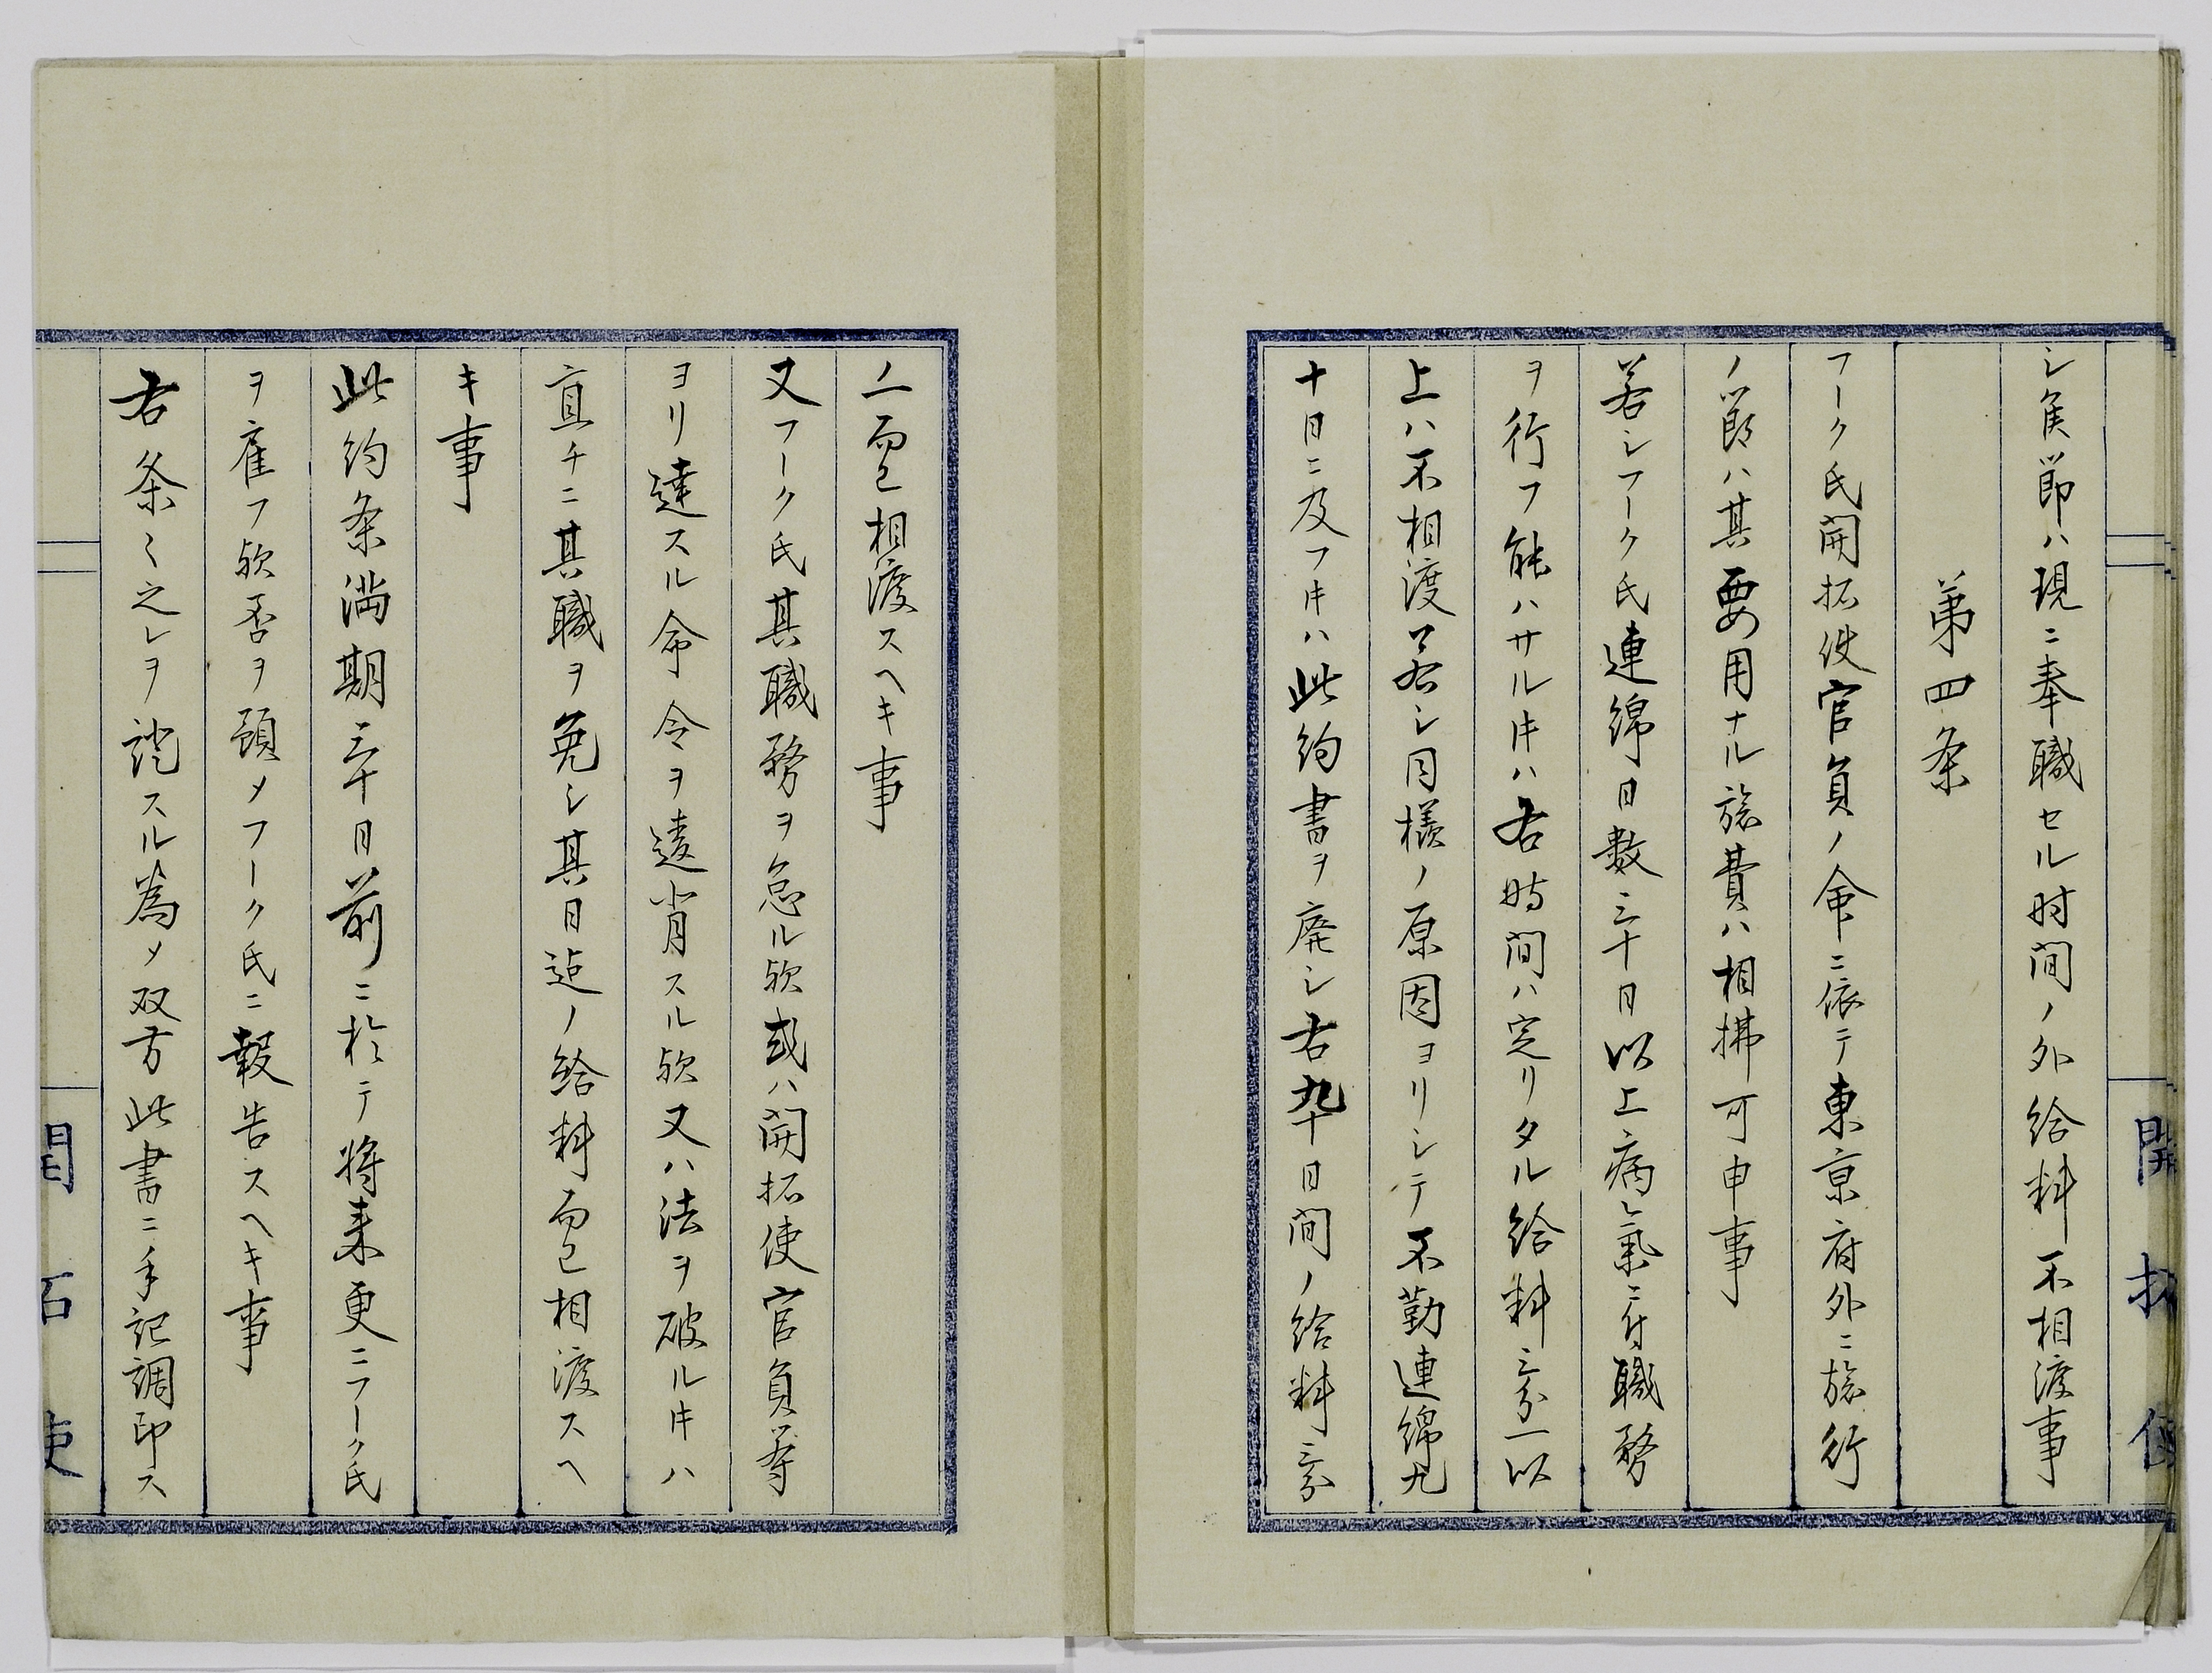 シ候節ハ現ニ奉職セル时間ノ外給料不相渡事
第四条
フーク氏開拓使官員ノ命ニ依テ東京府外ニ旅行
ノ節ハ其要用ナル旅費ハ相拂可申事
若シフーク氏連綿日数三十日以上病氣ニ付職務
ヲ行フ能ハサル𪜈ハ右時間ハ定リタル給料三分一以
上ハ不相渡若シ同様ノ原因ヨリシテ不勤連綿九
十日ニ及フ𪜈ハ此約書ヲ廃シ右九十日間ノ給料三分
ノ一而已相渡スヘキ事
又フーク氏其職務ヲ怠ル欤或ハ開拓使官員等
ヨリ達スル命令ヲ違背スル欤又ハ法ヲ破ル𪜈ハ
直チニ其職ヲ免シ其日迠ノ給料而已相渡スヘ
キ事
此約条満期三十日前ニ於テ将来更ニフーク氏
ヲ雇フ欤否ヲ預メフーク氏ニ報告スヘキ事
右条〻之レヲ證スル為メ双方此書ニ手記調印ス
開拓使